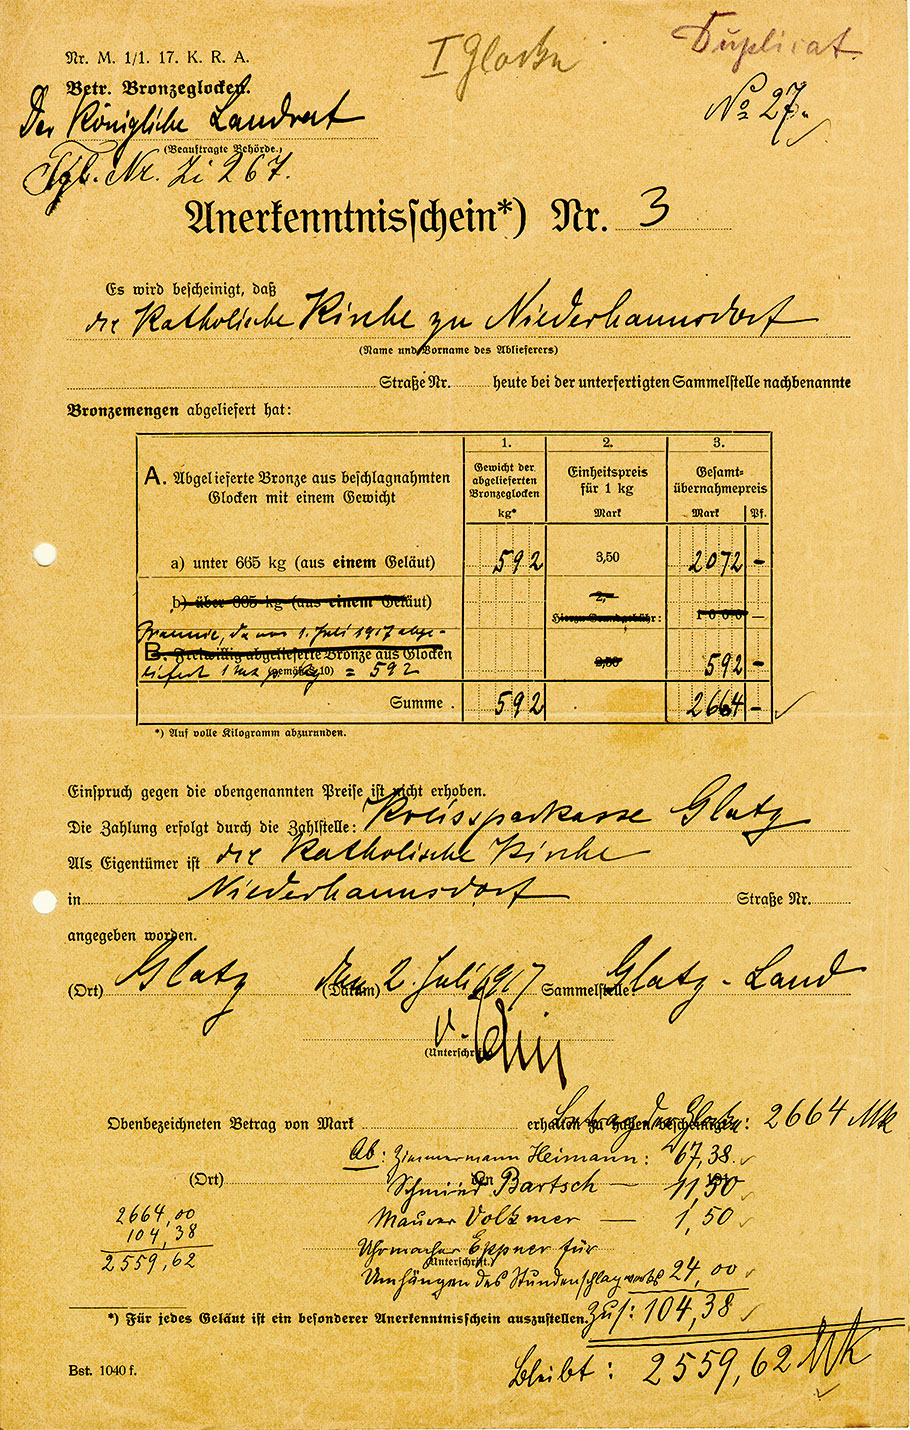 Nr. M. 1/1. 17. K. R. A.
I Glocke
Duplicat.
Betr. Bronzeglocken.
No 27.
Der Königliche Landrat
(Beauftragte Behörde.)
Tgb. Nr. Zi 267.
Anerkenntnisschein*) Nr. 3
Es wird bescheinigt, daß
die Katholische Kirche zu Niederhannsdorf
(Name und Vorname des Ablieferers)
Straße Nr. heute bei der unterfertigten Sammelstelle nachbenannte
Bronzemengen abgeliefert hat:
1. 2. 3.
A. Abgelieferte Bronze aus beschlagnahmten Glocken mit einem Gewicht
Gewicht der abgelieferten Bronzeglocken kg*
Einheitspreis für 1 kg Mark
Gesamtübernahmepreis Mark Pf.
a) unter 665 kg (aus einem Geläut) 592 3,50 2072 –
b) über 665 kg (aus einem Geläut) 2,– Hierzu Grundgebühr: 1000 —
Praemie, da vor 1. Juli 1917 abge-
B. Freiwillig abgelieferte Bronze aus Glocken 3,50 592 –
liefert 1 Mk p. kg = 592
(gemäß § 10)
Summe . 592 2664 –
*) Auf volle Kilogramm abzurunden.
Einspruch gegen die obengenannten Preise ist nicht erhoben.
Die Zahlung erfolgt durch die Zahlstelle: Kreissparkasse Glatz
Als Eigentümer ist die Katholische Kirche
in Niederhannsdorf Straße Nr.
angegeben worden.
(Ort) Glatz (Datum) den 2. Juli 1917 Sammelstelle: Glatz-Land
(Unterschrift)
Obenbezeichneten Betrag von Mark erhalten zu haben bescheinigt:
Betrag der Glocke: 2664 Mk
Ab: Zimmermann Heimann: 67,38.
(Ort) den 191
Schmied Bartsch — 11,50
2664,00
Maurer Volkmer — 1,50
104,38
Uhrmacher Eppner für
2559,62
(Unterschrift.)
Umhängen des Stundenschlagwerks 24,00
*) Für jedes Geläut ist ein besonderer Anerkenntnisschein auszustellen.
Zus: 104,38
Bst. 1040 f.
Bleibt: 2559,62 Mk